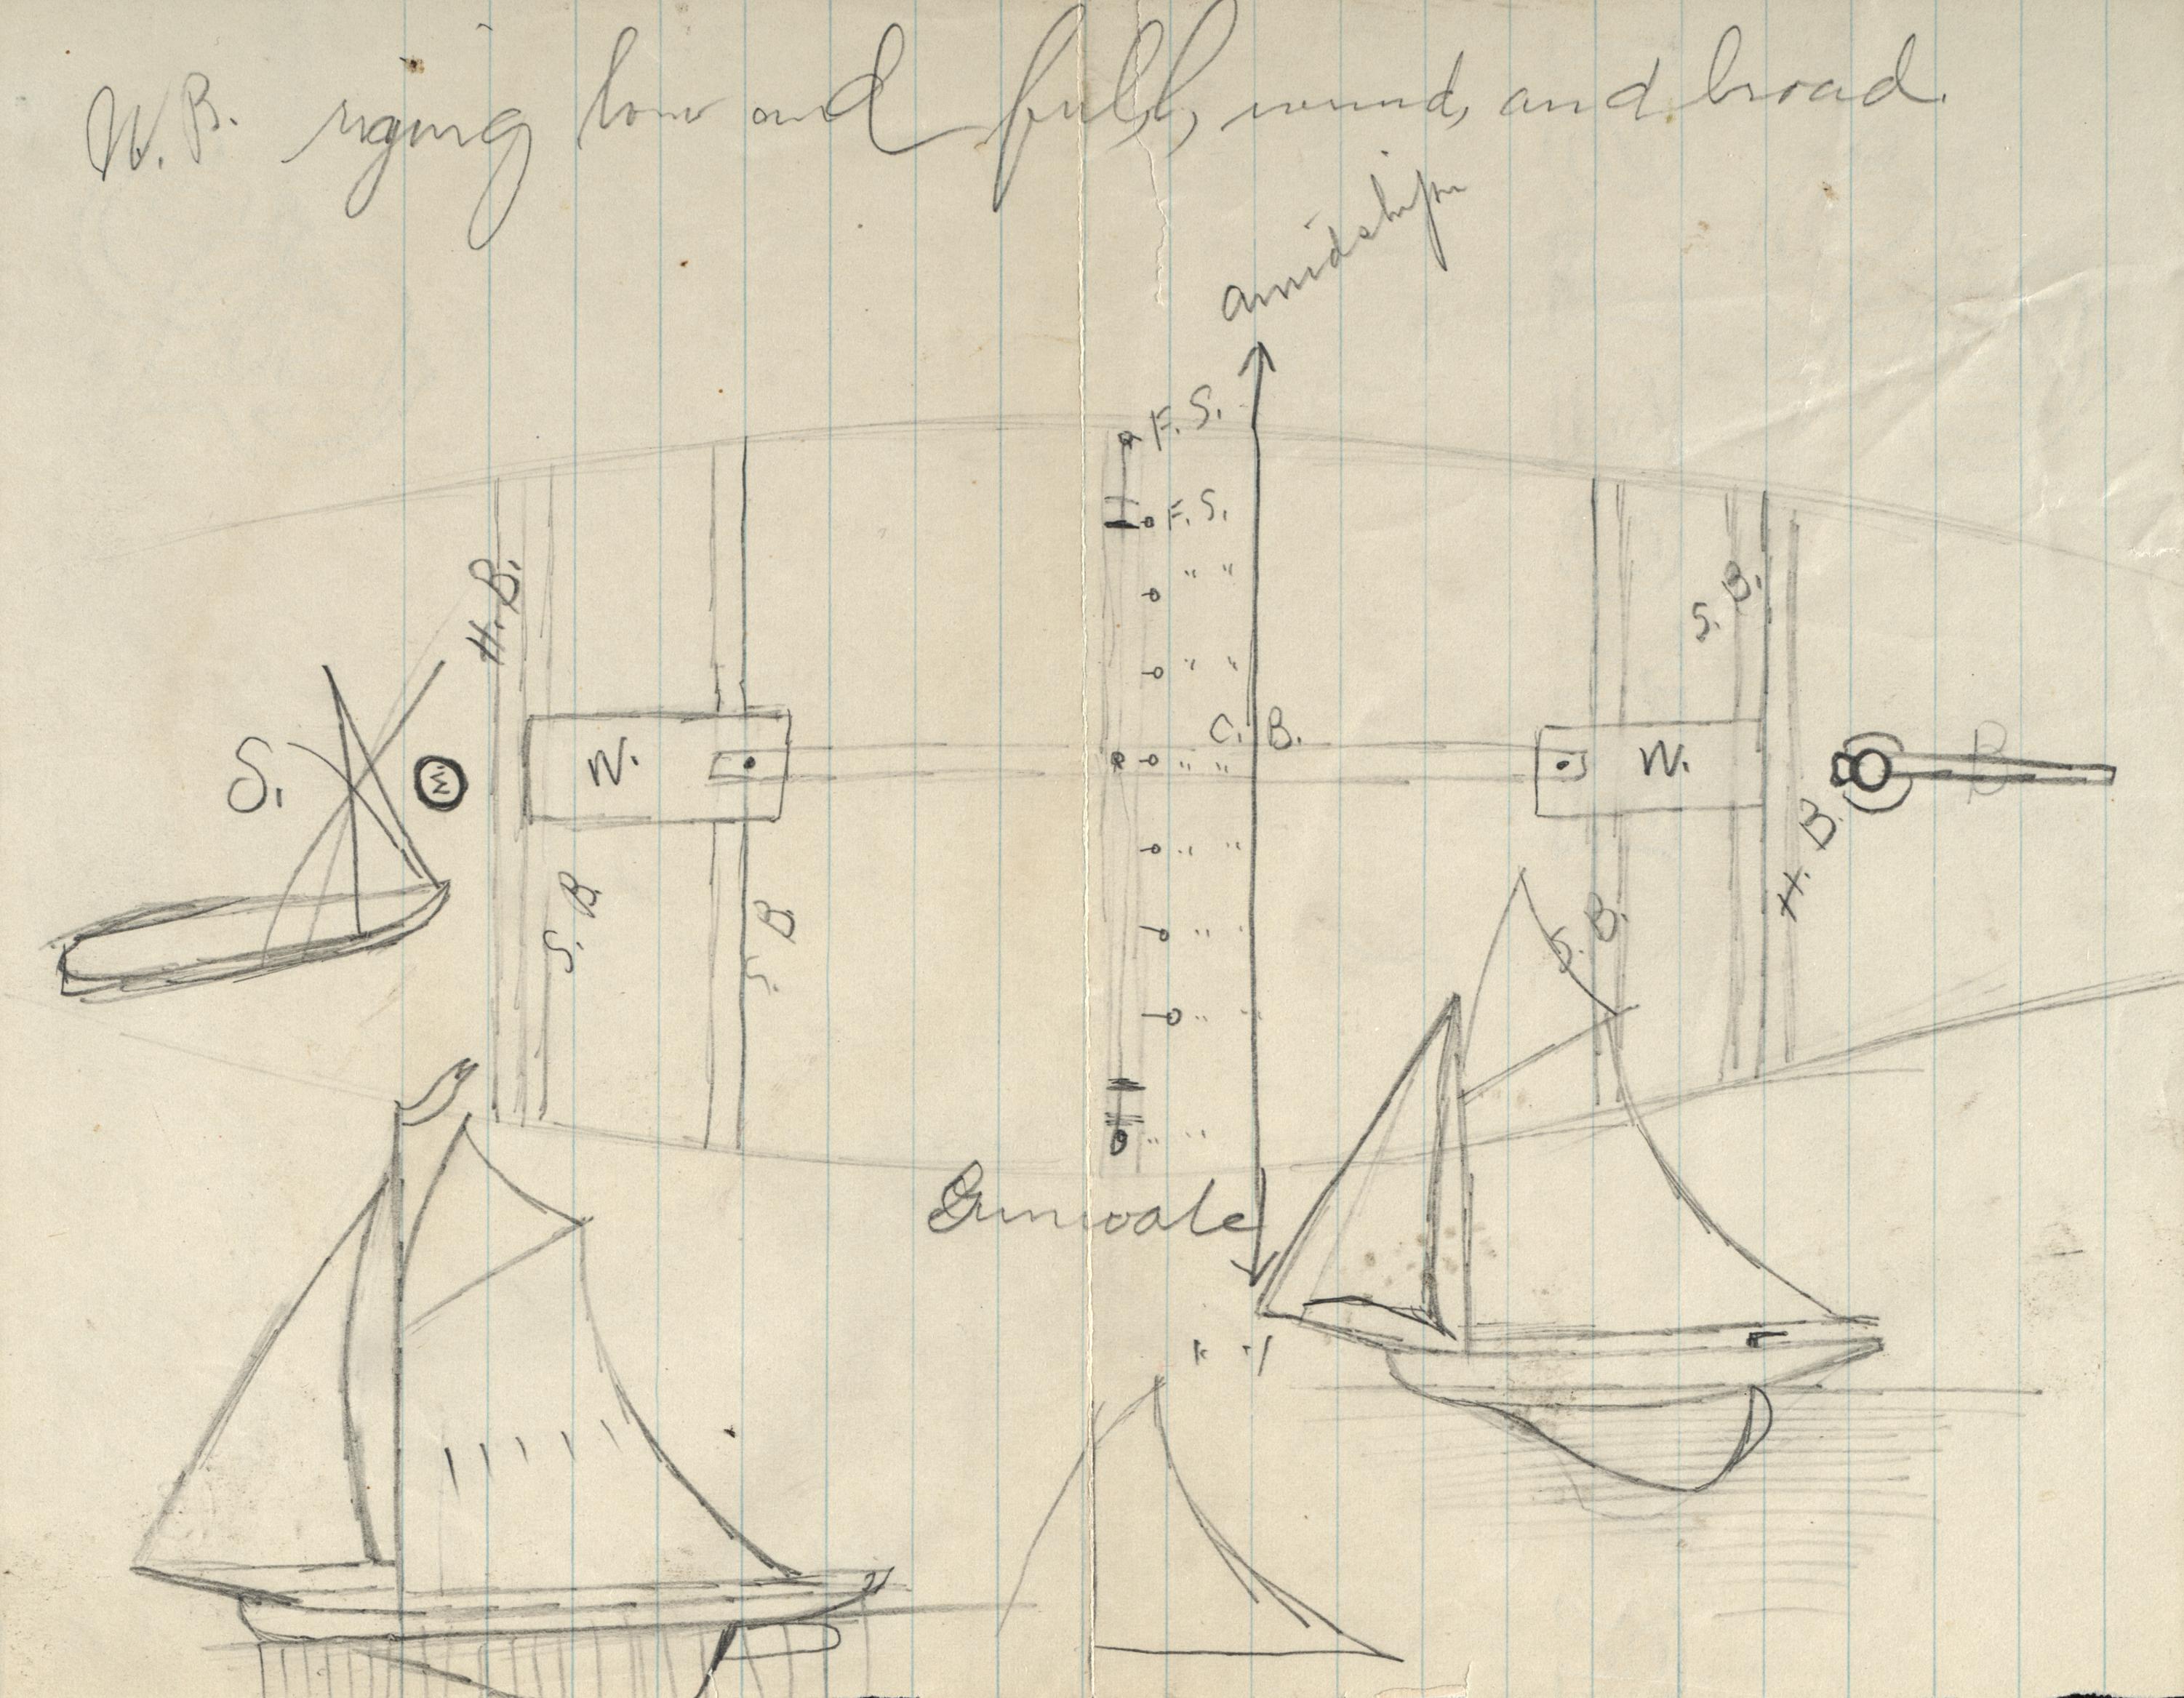 W. B. riging low and full, round, and broad.
amidships
F. S.
F. S.
" "
" "
C. B.
" "
" "
" "
" "
" "
H. B.
S. B.
S. B.
S. B.
S. B.
H. B.
S.
M.
W.
W.
B
Gunwale